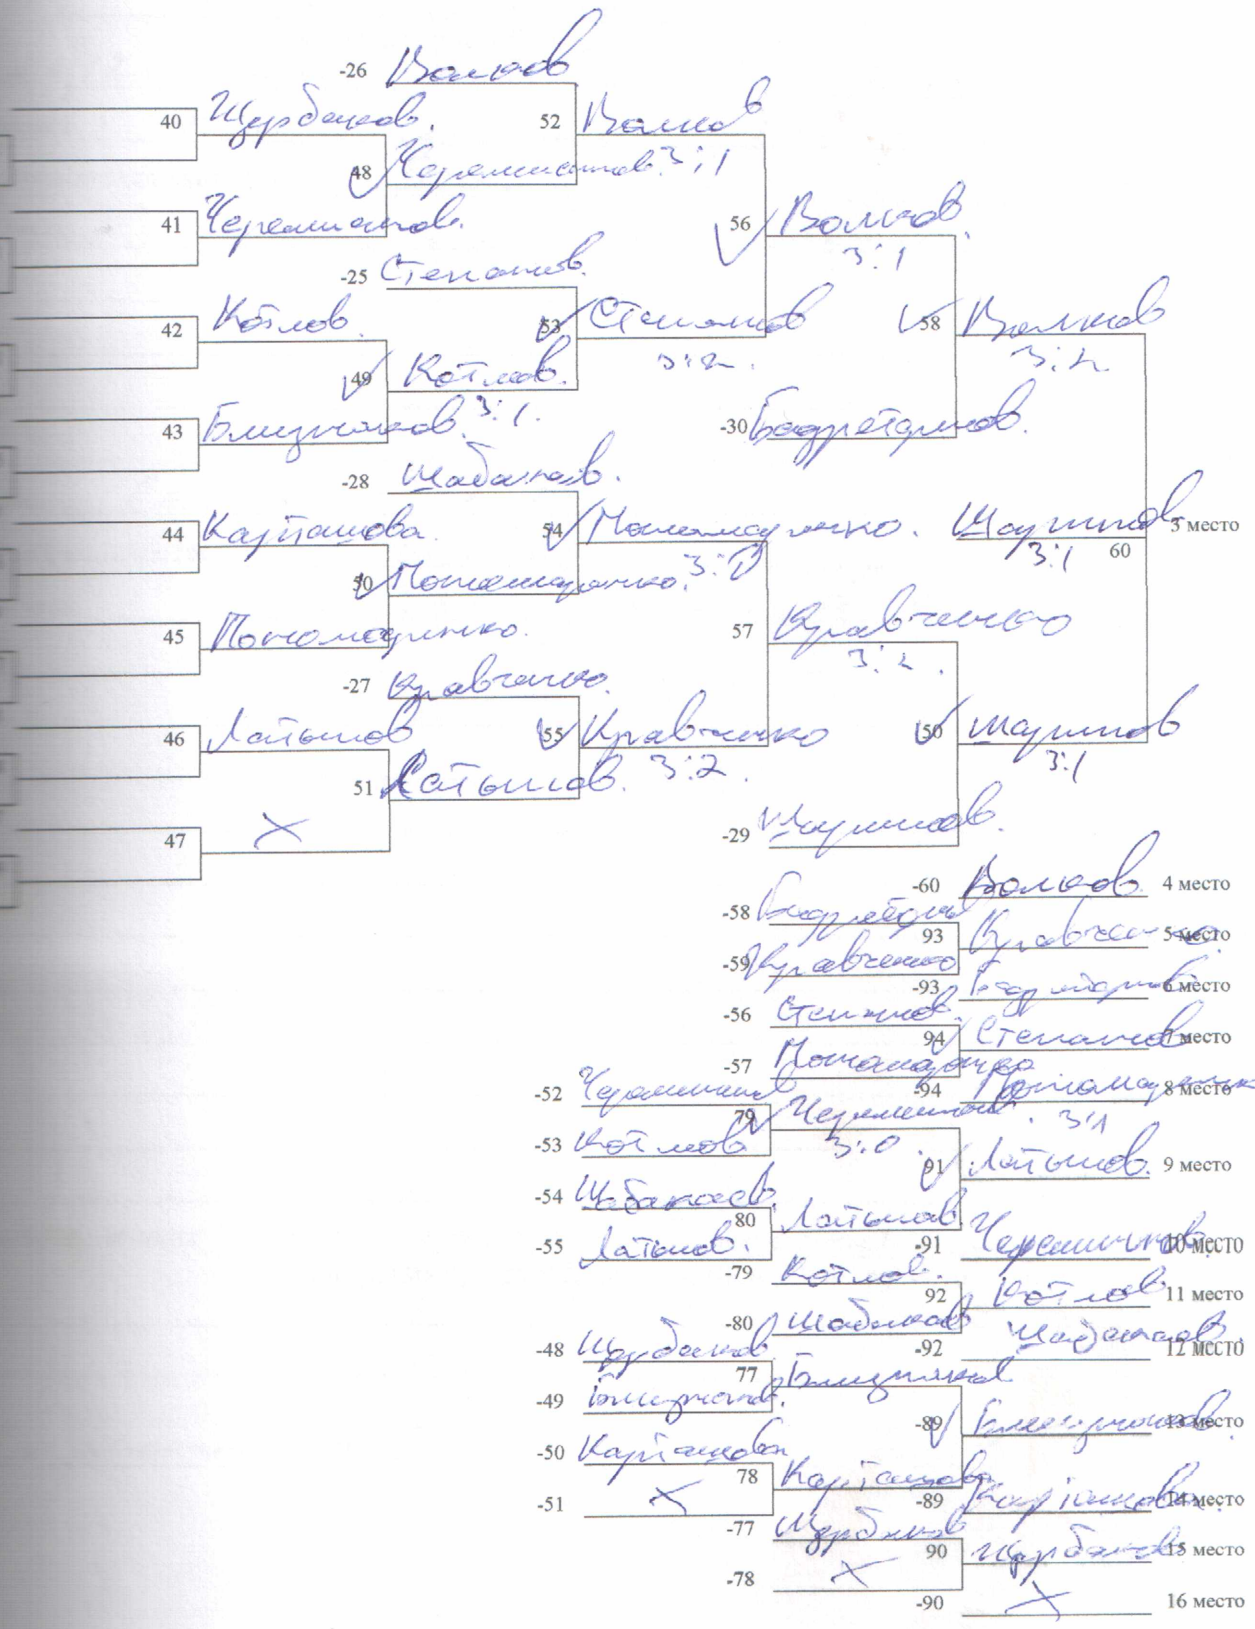 -26 Волков
40 Щербаков.
52 Волков
48 Черемшанов. 3:1
41 Черемшанов.
56 Волков.
3:1
-25 Степанов.
42 Котлов.
53 Степанов
3:2.
58 Волков
3:2.
49 Котлов.
3:1.
43 Близняков.
-30 Бадретдинов.
-28 Шабанов.
44 Карташова.
54 Пономаренко.
Шарипов 3 место
3:1 60
50 Пономаренко. 3:1
45 Пономаренко.
57 Кравченко
3:2.
-27 Кравченко.
46 Латыпов
55 Кравченко
3:2.
50 Шарипов
3:1
51 Латыпов.
47 X
-29 Шарипов.
-60 Волков. 4 место
-58 Бадретдинов
93 Кравченко 5 место
-59 Кравченко
-93 Бадретдинов 6 место
-56 Степанов.
94 Степанов 7 место
-57 Пономаренко
-94 Пономаренко 8 место
3:1
-52 Черемшанов
79 Черемшанов.
3:0
-53 Котлов
91 Латыпов. 9 место
-54 Шабанов.
80 Латыпов
-55 Латыпов.
-91 Черемшанов. 10 место
-79 Котлов.
92 Котлов 11 место
-80 Шабанов
-92 Шабанов 12 место
-48 Щербаков
77 Близняков
-49 Близняков.
-89 Близняков. 13 место
-50 Карташова
78 Карташова
-89 Карташова. 14 место
-51 X
-77 Щербаков
90 Щербаков 15 место
-78 X
-90 X 16 место